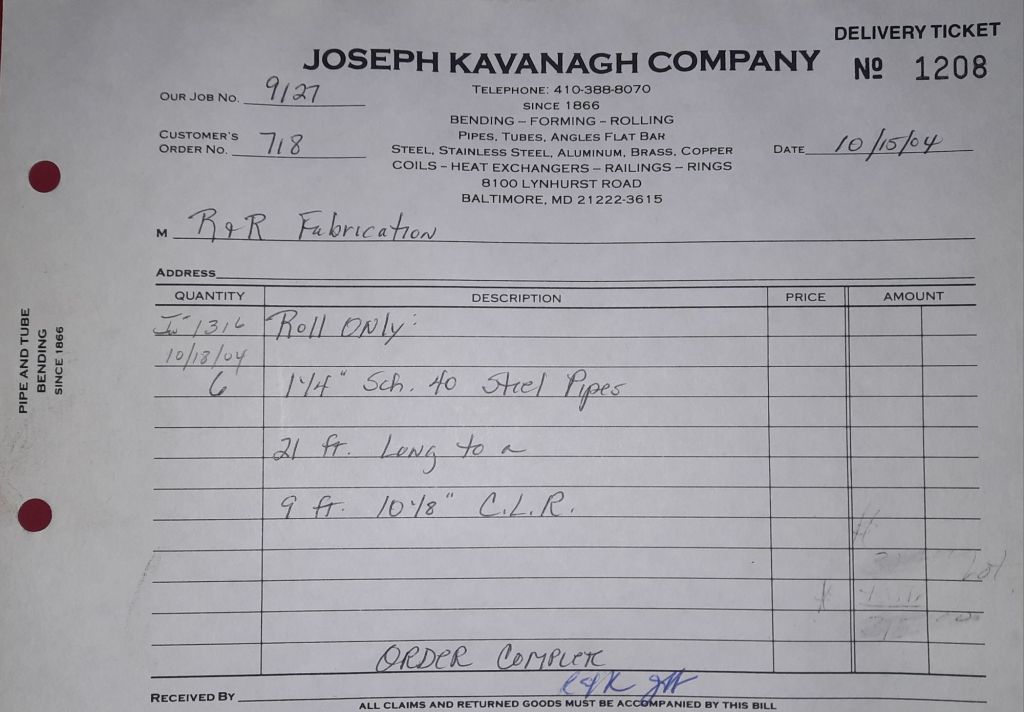 DELIVERY TICKET
JOSEPH KAVANAGH COMPANY
Nº 1208
TELEPHONE: 410-388-8070
SINCE 1866
BENDING – FORMING – ROLLING
PIPES, TUBES, ANGLES FLAT BAR
STEEL, STAINLESS STEEL, ALUMINUM, BRASS, COPPER
COILS – HEAT EXCHANGERS – RAILINGS – RINGS
8100 LYNHURST ROAD
BALTIMORE, MD 21222-3615
OUR JOB NO. 9127
CUSTOMER'S
ORDER NO. 718
DATE 10/15/04
M R & R Fabrication
ADDRESS
QUANTITY DESCRIPTION PRICE AMOUNT
1316 Roll Only:
10/18/04
6 1 1/4" Sch. 40 Steel Pipes
21 ft. Long to a
9 ft. 10 1/8" C.L.R.
ORDER COMPLETE
RECEIVED BY
ALL CLAIMS AND RETURNED GOODS MUST BE ACCOMPANIED BY THIS BILL
PIPE AND TUBE
BENDING
SINCE 1866